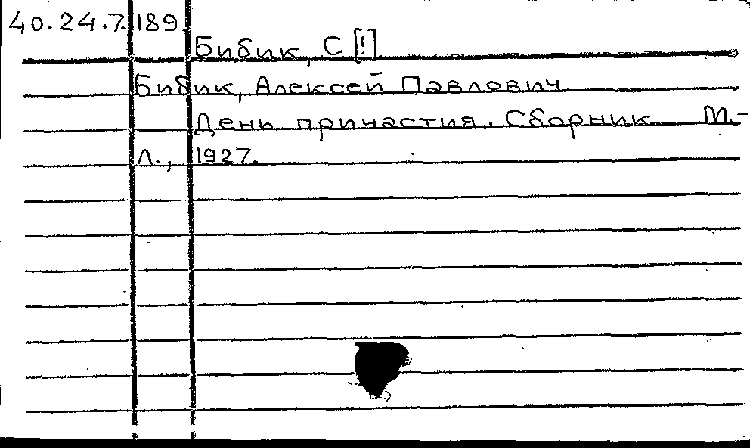 40.24.7.189.
Бибик, С [!]
Бибик, Алексей Павлович
День причастия. Сборник М.-
Л., 1927.